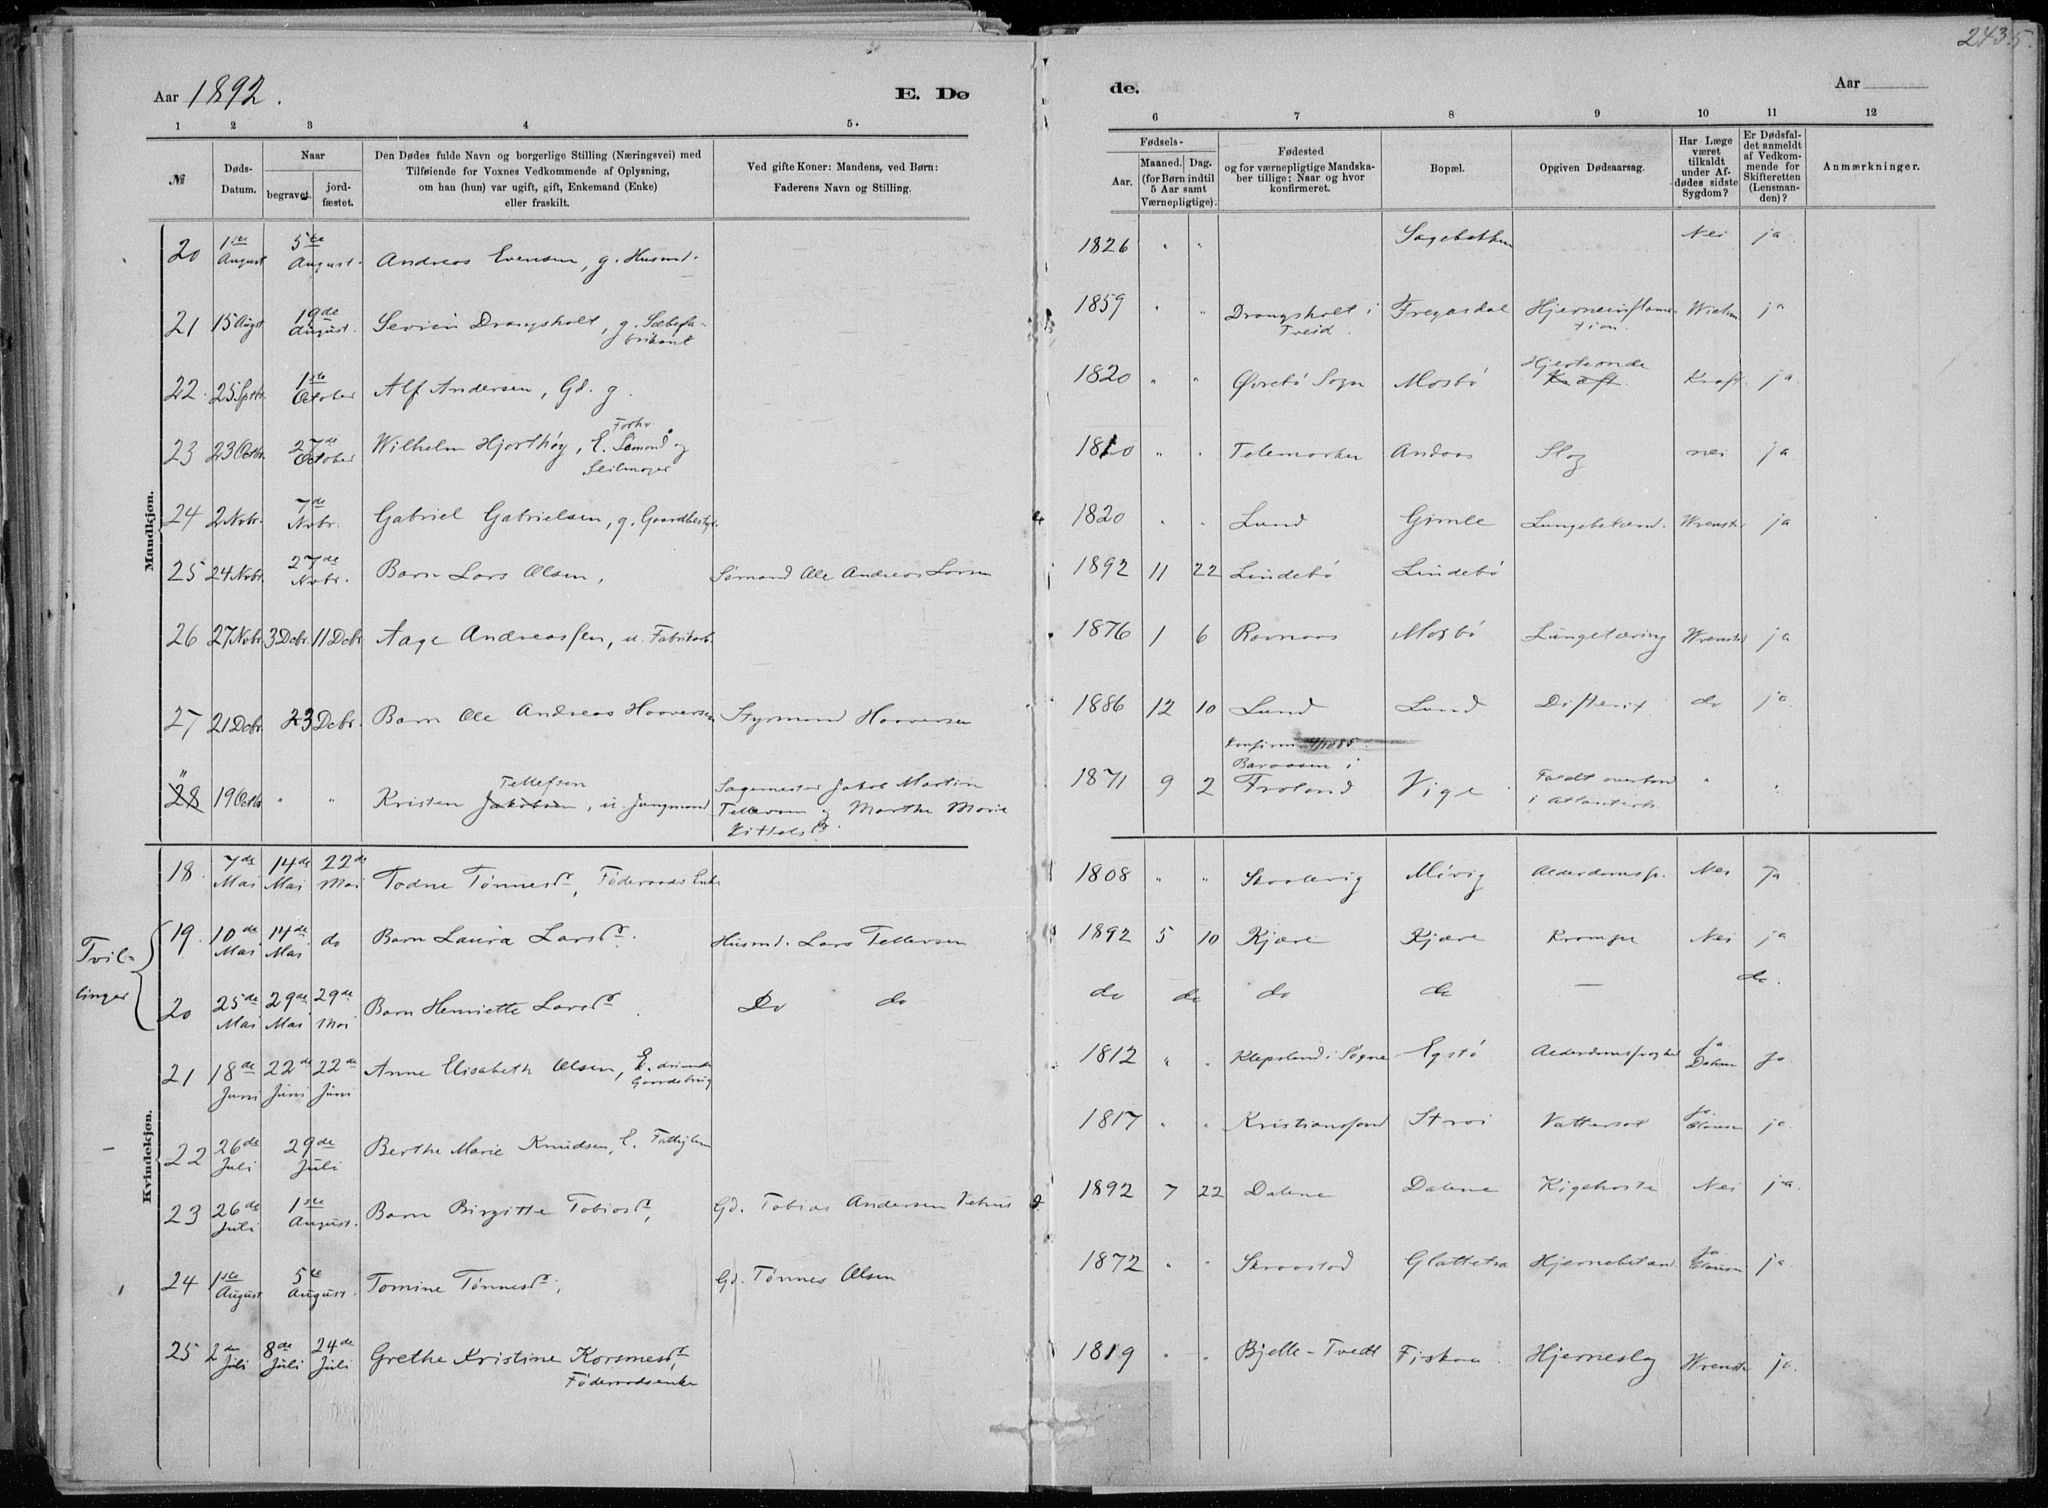 2435.
Aar 1892.
E. Dø
de.
Aar
1 2 3 4 5. 6 7 8 9 10 11 12
№
Døds-
Datum.
Naar
begravet.
jord-
fæstet.
Den Dødes fulde Navn og borgerlige Stilling (Næringsvei) med
Tilføiende for Voxnes Vedkommende af Oplysning,
om han (hun) var ugift, gift, Enkemand (Enke)
eller fraskilt.
Ved gifte Koner: Mandens, ved Børn:
Faderens Navn og Stilling.
Fødsels-
Aar.
Maaned. Dag.
(for Børn indtil
5 Aar samt
Værnepligtige).
Fødested
og for værnepligtige Mandska-
ber tillige: Naar og hvor
konfirmeret.
Bopæl.
Opgiven Dødsaarsag.
Har Læge
været
tilkaldt
under Af-
dødes sidste
Sygdom?
Er Dødsfal-
det anmeldt
af Vedkom-
mende for
Skifteretten
(Lensman-
den)?
Anmærkninger.
Mandkjøn.
20 1ste August 5te August. Andreas Evensen, g. Husmd. 1826 " " Nei ja.
21 15 Augst 19de August. Drangsholt, g. Sæbefa-
brikant 1859 " " Drangsholt i
Tveid. Hjerneinflama-
tion. ja
22. 25 Sptbr. 1ste October Alf Andersen, Gd. g. 1820 " " Øvrebö Sogn Mosbö Hjerteonde
Kraft. Kraft. ja.
23 23 Octbr. 27de October Wilhelm Hjorthöy, E. Forhv.
Sömand og
Seilmager 1810 " " Telemarken Andaas Slag nei ja.
24 2 Nvbr. 7de Nvbr. Gabriel Gabrielsen, g. 1820 " " Lund Gimle Lungebetænd. ja
25 24 Nvbr. 27de Nvbr. Barn Lars Olsen, Sömand Ole Andreas Larsen 1892 11 22 Lindebö Lindebö
26 27 Nvbr. 3 Dcbr. 11 Dcbr Aage Andreassen, u. Fabrikarb. 1876 1 6 Ravnaas Mosbö Lungetæring ja
27 21 Dcbr. 23 Dcbr. Barn Ole Andreas Haaversen Styrmand Haaversen 1886 12 10 Lund Lund Difterit do ja
" 28 19 Octbr. " " Kristen Tellefsen
Jakobsen, u Jungmand Sagmester Jakob Martin
Tellefsen og Marthe Marie 1871 9 2 Froland Vige Faldt overbord
i Atlanterh. " "
Kvindekjøn.
18. 7de Mai 14de Mai 22de Mai Todne Tönnesdr., Föderaads Enke 1808 " " Skaalevig Alderdomssv. Nei Ja
Tvil-
linger
19. 10de Mai 14de Mai do Barn Laura Larsdr. Husmd. Lars Tellefsen 1892 5 10 Kjære Kjære Krampe Nei ja
20 25de Mai 29de Mai 29de Mai Barn Henriette Larsdr. Do do do do do do — do.
21 18de Juni 22de Juni 22de Juni Anne Elisabeth Olsen, E. drivende
Gaardsbrug 1812 " " Klepsland i Sögne Egstö ja ja
22 26de Juli 29de Juli Berthe Marie Knudsen, E. 1817 " " Kristianssand Strai Vattersot ja. ja
23 26de Juli 1ste August. Barn Birgitte Tobiasdr, Gd. Tobias Andersen 1892 7 22 Dalene Dalene Kigehoste Nei ja.
24 1ste August 5te August. Tomine Tönnesdr, Gd. Tönnes Olsen 1872 " " Hjernebetænd. ja ja.
25 2den Juli 8de Juli 24de Juli Grethe Kristine Korsmesdr,
Föderaadsenke 1819 " " Bjelle-Tvedt Fiskaa. Hjerneslag ja.